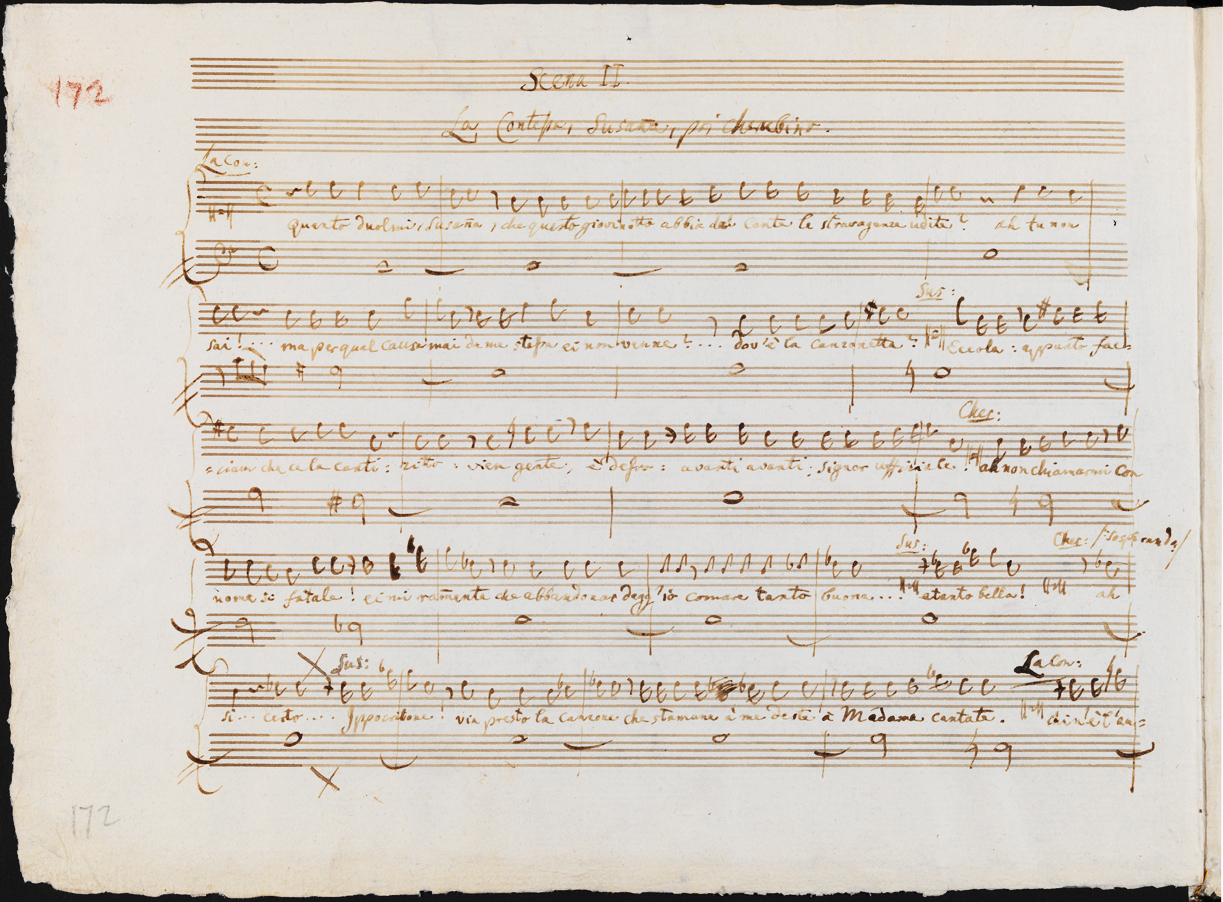 Scena II.
172
La Contessa, Susana, poi cherubino.
La Con:
Quanto duolmi, Susana, che questo giovinotto abbia del Conte le stravaganze udite? ah tu non
Sus:
sai!... ma per qual causa mai da me stessa ei non venne?... dov'è la canzonetta? Eccola: appunto fac=
Cher:
=ciam che ce la canti: zitto: vien gente, è desso: avanti avanti, signor uffiziale! ah non chiamarmi con
Sus: Cher:
nome sì fatale! ei mi ramenta che abbandonar degg'io comare tanto buona... e tanto bella! ah
Sus: La Con:
sì... certo.... Ippocritone! via presto la canzone che stamane à me deste à Madama cantate. chi n'è l'au=
172